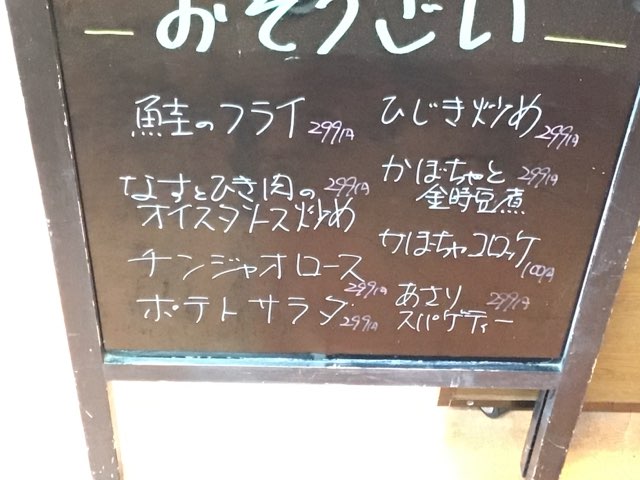 おそうざい
鮭のフライ 299円
なすとひき肉の 299円
オイスターソース炒め
チンジャオロース 299円
ポテトサラダ 299円
ひじき炒め 299円
かぼちゃと 299円
金時豆煮
かぼちゃコロッケ 100円
あさり 299円
スパゲティー